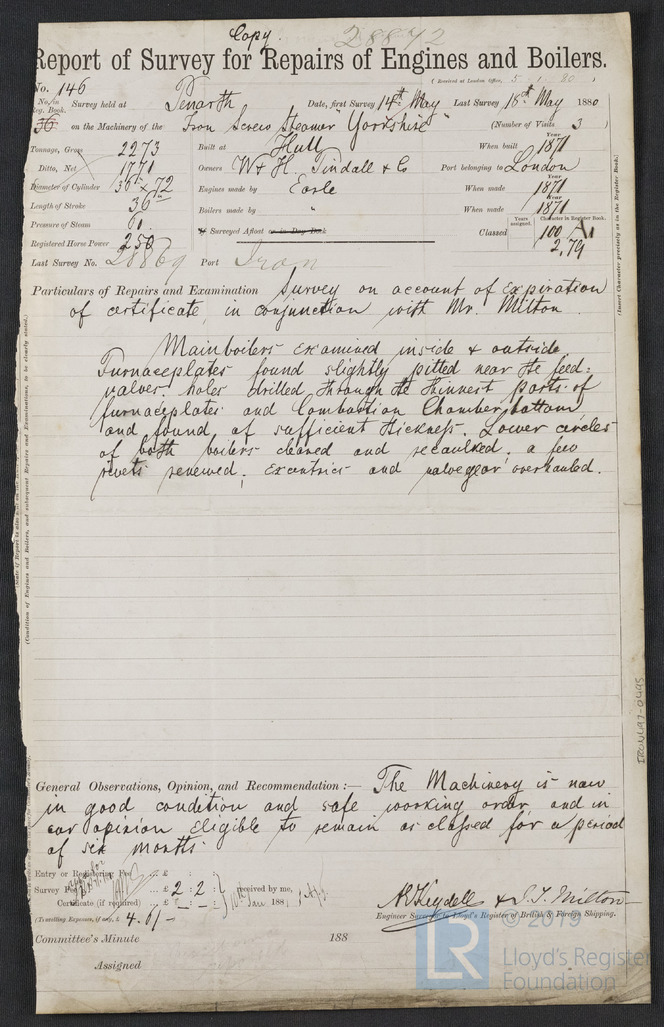 Copy.
28872
Report of Survey for Repairs of Engines and Boilers.
(Received at London Office, 5 1 80)
No. 146
No. in Reg. Book. Survey held at Penarth Date, first Survey 14th May Last Survey 18th May 1880
36 on the Machinery of the Iron Screw Steamer "Yorkshire" (Number of Visits 3)
Tonnage, Gross 2273 Built at Hull When built Year 1871
Ditto, Net 1771 Owners W & H. Tindall & Co Port belonging to London
Diameter of Cylinder 36" x 72 Engines made by Earle When made Year 1871
Length of Stroke 36in Boilers made by " When made Year 1871
Pressure of Steam
Registered Horse Power 250 If Surveyed Afloat or in Dry Dock Classed Years assigned. Character in Register Book. 100 A1 2,79
Last Survey No. 28869 Port Iron
Particulars of Repairs and Examination Survey on account of expiration
of certificate, in conjunction with Mr. Milton.
Main boilers examined inside & outside
Furnaceplates found slightly pitted near the feed=
valves. holes drilled through the thinnest parts of
furnaceplates and Combustion Chamber bottom
and found of sufficient thickness. Lower circles
of both boilers cleaned and recaulked, a few
rivets renewed. excentrics and valvegear overhauled.
General Observations, Opinion, and Recommendation :— The Machinery is now
in good condition and safe working order and in
our opinion eligible to remain as classed for a period
of six months
Entry or Registering Fee ... £ : :
Survey Fee ... £ 2 : 2 : received by me,
Certificate (if required) ... £ 10th Jan. 188
(Travelling Expenses, if any, £ 4.6/-
A K Keydell & J. T. Milton
Engineer Surveyor to Lloyd's Register of British & Foreign Shipping.
Committee's Minute 188
Assigned
(Insert Character precisely as in the Register Book.)
(Condition of Engines and Boilers, and subsequent Repairs and Examinations, to be clearly stated.)
IRON197-0495
© 2019
LR
Lloyd's Register
Foundation